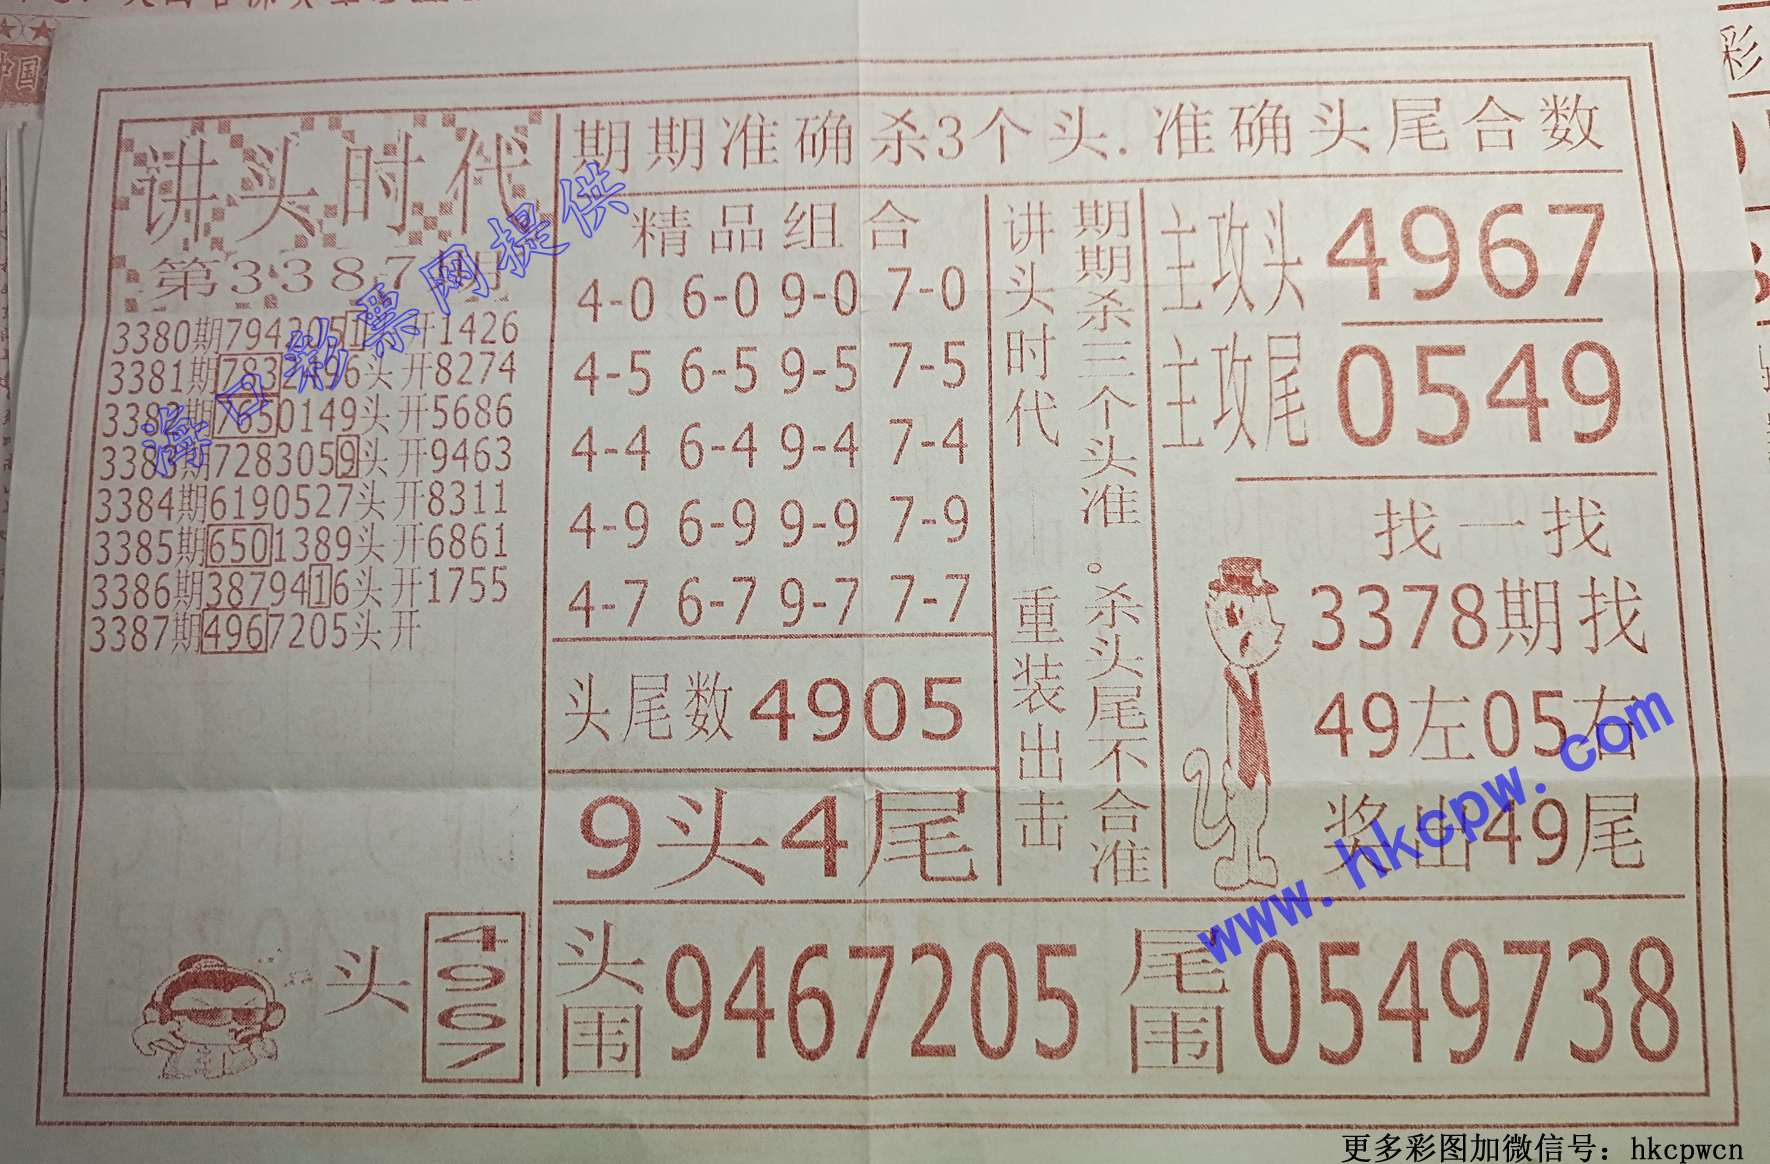 中国
彩
讲头时代
第3387期
3380期7942051头开1426
3381期7832496头开8274
3382期7650149头开5686
3383期7283059头开9463
3384期6190527头开8311
3385期6501389头开6861
3386期3879416头开1755
3387期4967205头开
头
4967
期期准确杀3个头.准确头尾合数
精品组合
4-0 6-0 9-0 7-0
4-5 6-5 9-5 7-5
4-4 6-4 9-4 7-4
4-9 6-9 9-9 7-9
4-7 6-7 9-7 7-7
头尾数4905
9头4尾
讲头时代 重装出击
期期杀三个头准。杀头尾不合准
主攻头 4967
主攻尾 0549
找一找
3378期找
49左05右
奖出49尾
头围9467205 尾围0549738
海口彩票网提供
www.hkcpw.com
更多彩图加微信号：hkcpwcn